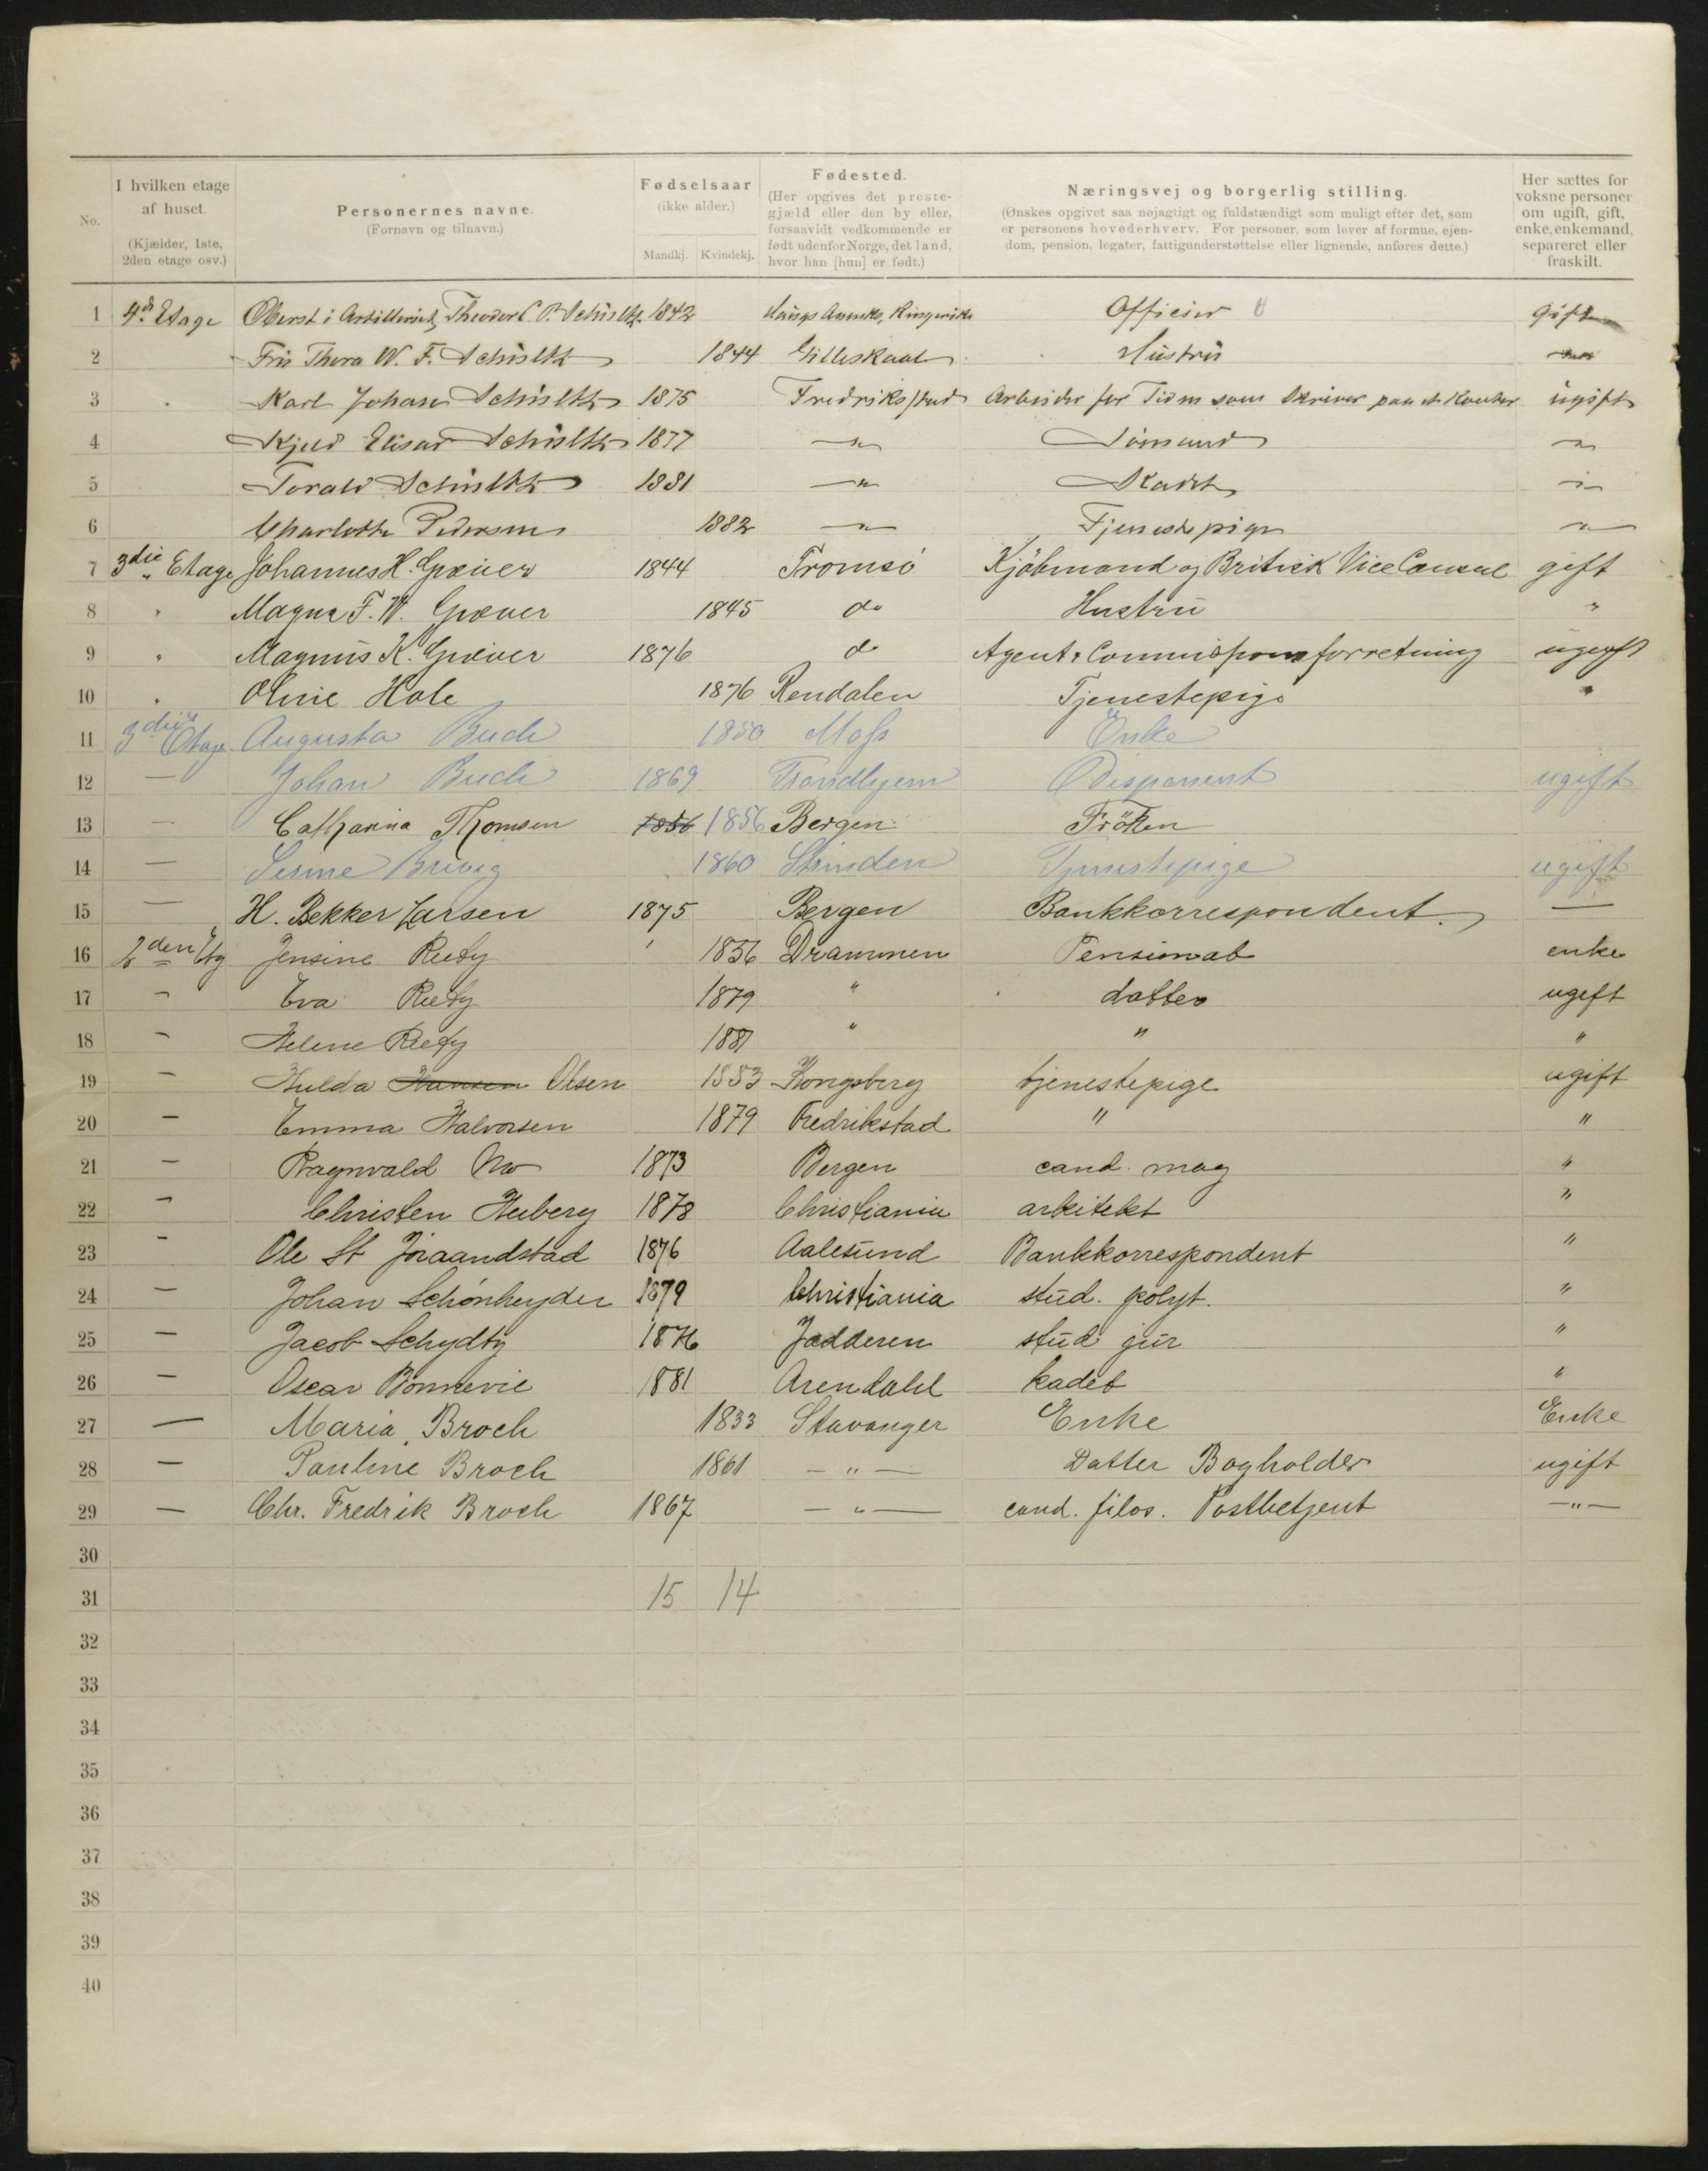 No.
I hvilken etage af huset. (Kjælder, 1ste, 2den etage osv.)
Personernes navne. (Fornavn og tilnavn.)
Fødselsaar (ikke alder.) Mandkj. Kvindekj.
Fødested. (Her opgives det prestegjæld eller den by eller, forsaavidt vedkommende er født udenfor Norge, det land, hvor han [hun] er født.)
Næringsvej og borgerlig stilling. (Ønskes opgivet saa nøjagtigt og fuldstændigt som muligt efter det, som er personens hovederhverv. For personer, som lever af formue, ejendom, pension, legater, fattigunderstøttelse eller lignende, anføres dette.)
Her sættes for voksne personer om ugift, gift, enke, enkemand, separeret eller fraskilt.
1 4de Etage Oberst i Artilleriet, Theodor C. P. Schultz 1842 Ringerike Officier gift
2 Fru Thora W. F. Schultz 1844 Gilleskaal Hustru "
3 Karl Johan Schultz 1875 Fredrikstad Arbeider for Tiden som Skriver paa et Kontor ugift
4 Kjeld Elisar Schultz 1877 " Sömand "
5 Torald Schultz 1881 " Kadet "
6 Charlotte Pedersen 1882 " Tjenestepige "
7 3die Etage Johannes H. Græver 1844 Tromsö Kjöbmand og Britisk Vice Consul gift
8 " Magna F. W. Græver 1845 do Hustru "
9 " Magnus K. Græver 1876 do Agent & Commissionsforretning ugift
10 " Oline Hole 1876 Rendalen Tjenestepige "
11 3die Etage Augusta Buch 1850 Moss Enke
12 — Johan Buch 1869 Trondhjem Disponent ugift
13 — Catharina Thomsen 1856 1856 Bergen Fröken
14 — Brevig 1860 Strinden Tjenestepige ugift
15 — H. Bekker Larsen 1875 Bergen Bankkorrespondent. —
16 2den Etg Jensine 1856 Drammen Pensionat enke
17 — Eva 1879 " datter ugift
18 — Helene 1881 " " "
19 — Hulda Hansen Olsen 1883 Kongsberg tjenestepige ugift
20 — Emma Halvorsen 1879 Fredrikstad " "
21 — Ragnvald 1873 Bergen cand. mag "
22 — Christen 1878 Christiania arkitekt "
23 — Ole St Joraandstad 1876 Aalesund Bankkorrespondent "
24 — Johan Schönheyder 1879 Christiania stud. polyt. "
25 — Jacob Schydtz 1876 Jædderen stud jur "
26 — Oscar Bonnevie 1881 Arendahl kadet "
27 — Maria Broch 1833 Stavanger Enke Enke
28 — Pauline Broch 1861 — " — Datter Bogholder ugift
29 — Chr. Fredrik Broch 1867 — " — cand. filos. Postbetjent — " —
30
31 15 14
32
33
34
35
36
37
38
39
40